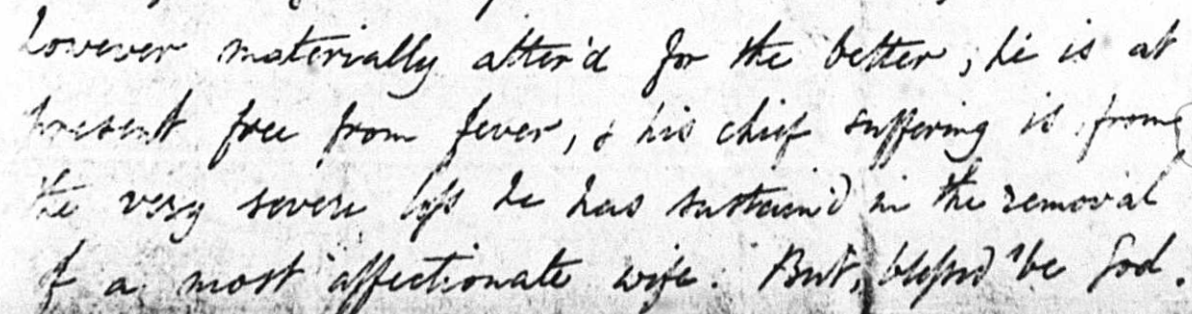 however materially alter'd for the better, he is at
present free from fever, & his chief suffering is from
the very severe loss he has sustain'd in the removal
of a most affectionate wife. But, blessed be God.